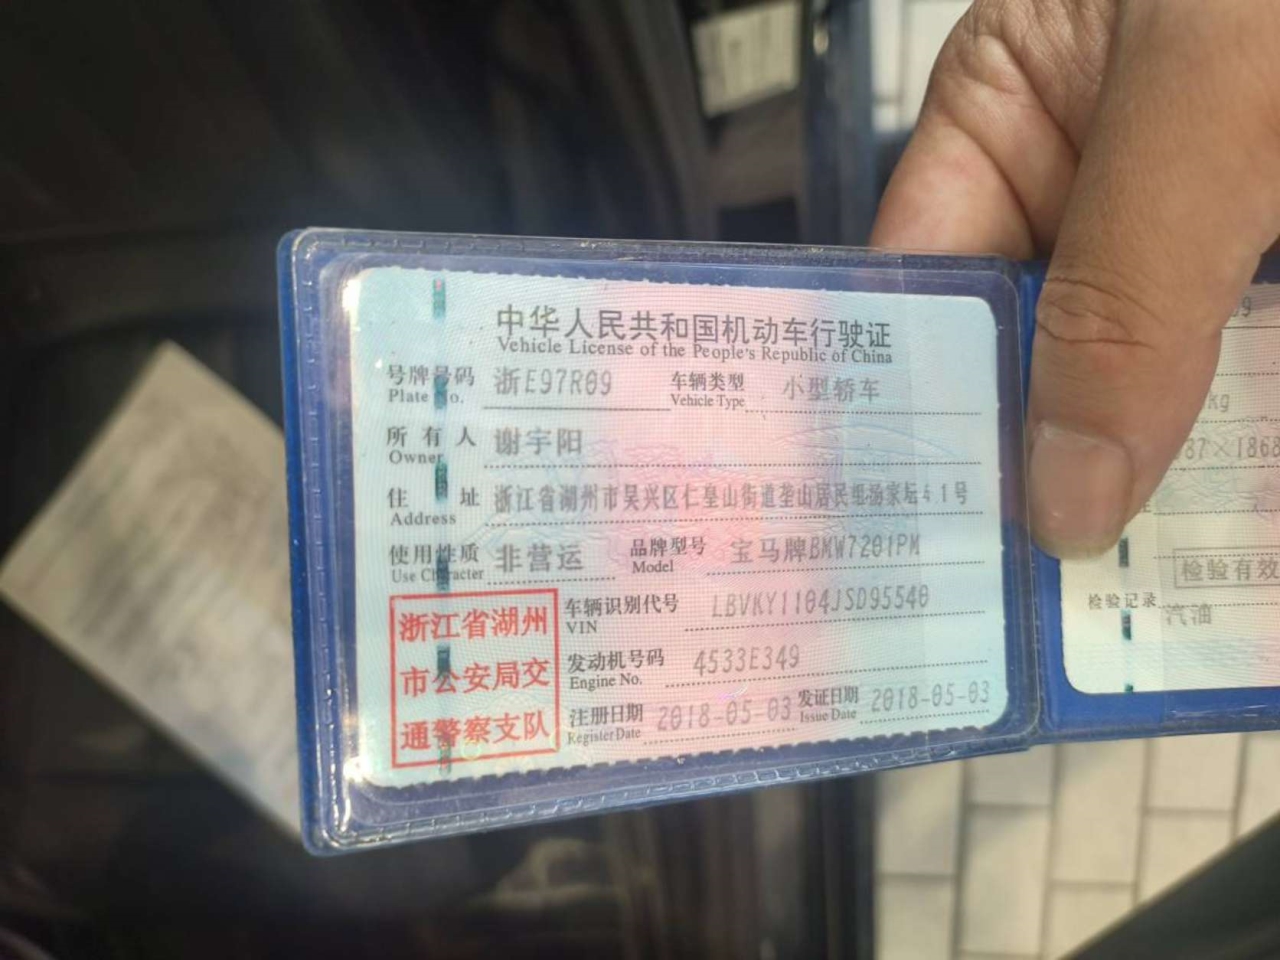 中华人民共和国机动车行驶证
Vehicle License of the People's Republic of China
号牌号码 浙E97R09 车辆类型 小型轿车
Plate No. Vehicle Type
所有人 谢宇阳
Owner
住址 浙江省湖州市吴兴区仁皇山街道垄山居民组杨家坛41号
Address
使用性质 非营运 品牌型号 宝马牌BMW7201PM
Use Character Model
浙江省湖州
市公安局交
通警察支队
车辆识别代号 LBVKY1104JSD95540
VIN
发动机号码 4533E349
Engine No.
注册日期 2018-05-03 发证日期 2018-05-03
Register Date Issue Date
09
kg
87×1868
检验有效
检验记录
汽油